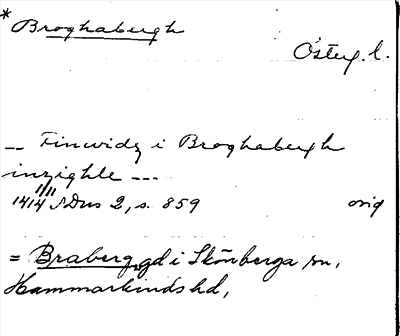 * Broghabergh
Österg. l.
-- Finwidz i Broghabergh
inzighle ---
11/11
1414 SDns 2, s. 859 orig
= Braberg, gd i Skönberga sn,
Hammarkinds hd,